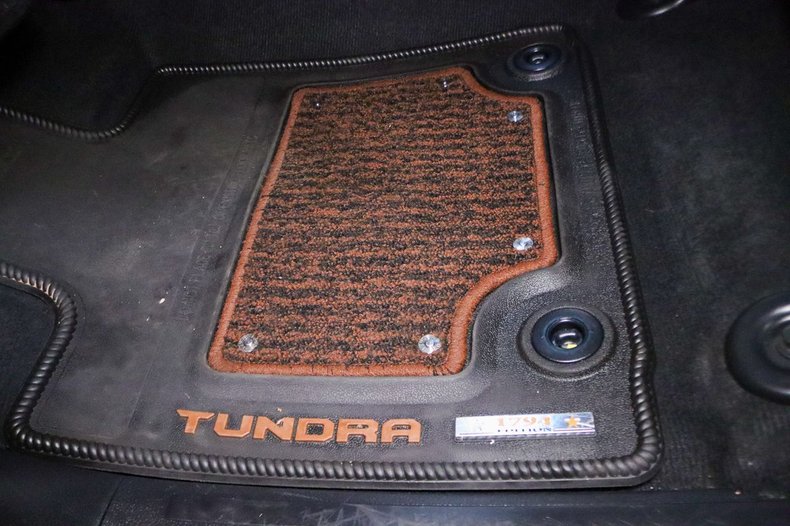 TUNDRA
1794
EDITION